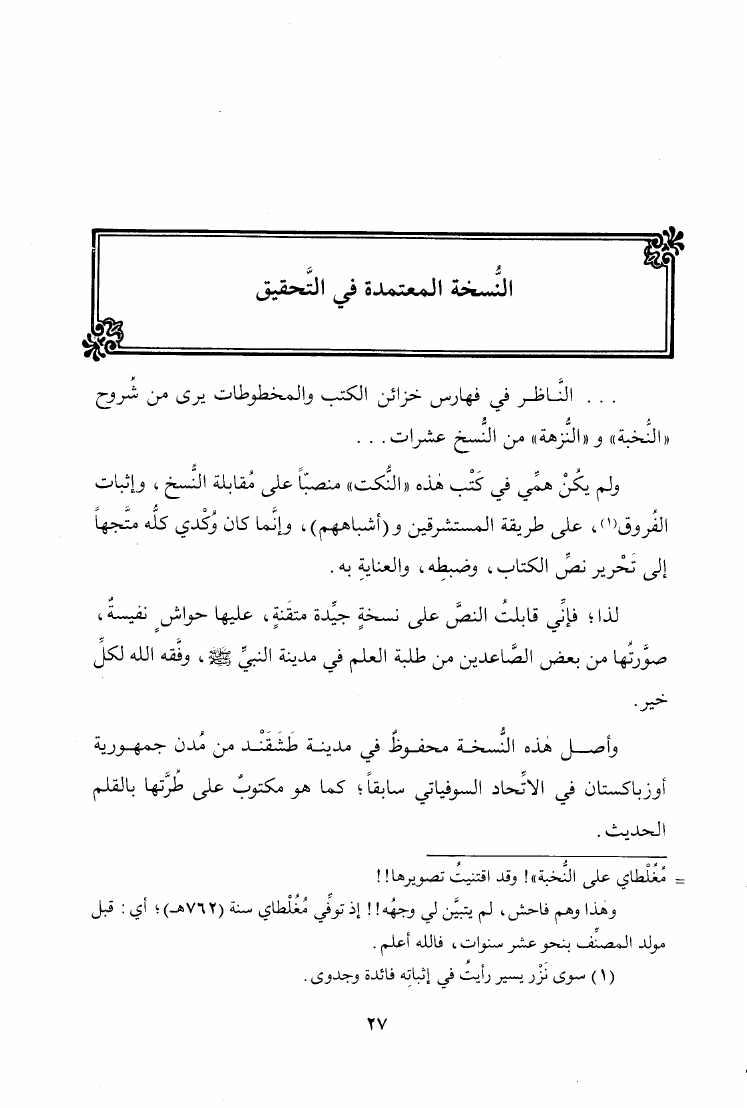 النُّسخة المعتمدة في التَّحقيق
... النَّاظر في فهارس خزائن الكتب والمخطوطات يرى من شُروح
«النُّخبة» و «النُّزهة» من النُّسخ عشرات...
ولم يكُنْ همِّي في كَتْب هٰذه «النُّكت» منصبّاً على مُقابلة النُّسخ، وإثبات
الفُروق(١)، على طريقة المستشرقين و(أشباههم)، وإنَّما كان وُكْدي كلُّه متَّجهاً
إلى تَحْرير نصِّ الكتاب، وضبطِه، والعنايةِ به.
لذا؛ فإنِّي قابلتُ النصَّ على نسخةٍ جيِّدة متقَنةٍ، عليها حواشٍ نفيسةٌ،
صوَّرتُها من بعض الصَّاعدين من طلبة العلم في مدينة النبيِّ ﷺ، وفَّقه الله لكلِّ
خير.
وأصل هٰذه النُّسخة محفوظٌ في مدينة طَشَقَنْد من مُدن جمهورية
أوزباكستان في الاتِّحاد السوفياتي سابقاً؛ كما هو مكتوبٌ على طُرَّتها بالقلم
الحديث.
= مُغُلْطاي على النُّخبة»! وقد اقتنيتُ تصويرها!!
وهٰذا وهم فاحش، لم يتبيَّن لي وجهُه!! إذ توفِّي مُغُلْطاي سنة (٧٦٢هـ)؛ أي: قبل
مولد المصنِّف بنحو عشر سنوات، فالله أعلم.
(١) سوى نَزْر يسير رأيتُ في إثباتِه فائدة وجدوى.
٢٧